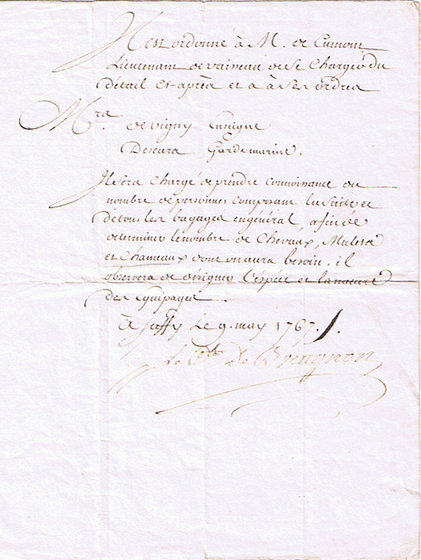 Il est ordonné à M. de Cumont
Lieutenant de vaisseau de se Chargé du
détail cy-après et a à ses ordres
Mrs.
de vigny Enseigne
Garde marine.
Il sera Chargé de prendre connoissance du
nombre de personnes composant la suite et
de tous les bagages en général, afin de
determiner le nombre de Chevaux, Mulets
et Chameaux dont on aura besoin. il
observera de désigner l'espece et la nature
des Equipages.
à Saffy Le 9. may 1767.
Le Cte. de Breugnon